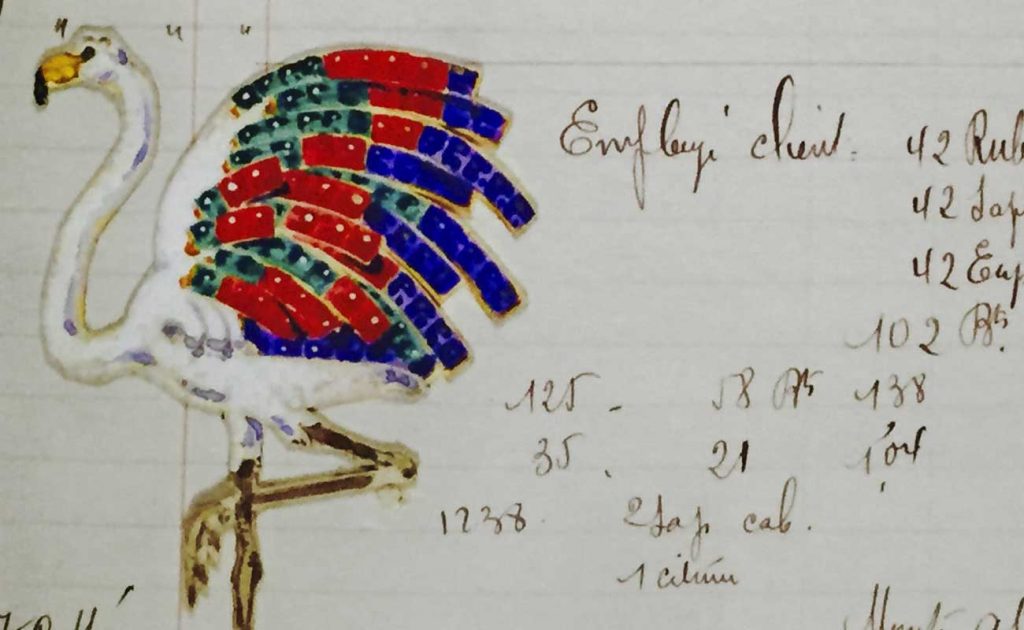 " " "
Employé client. 42 Rub
42 Sap
42 Em
102 Bts.
125 - 58 Bts 138
35. 21 1'04
1238 2 Sap cab.
1 citrin